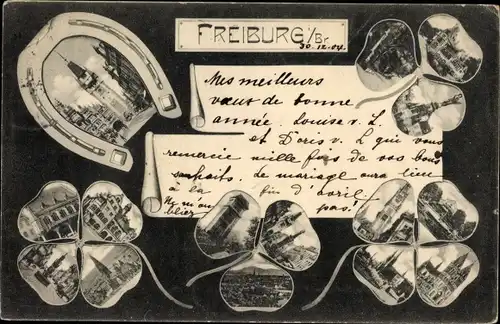 FREIBURG i/Br.
30.12.04.
Mes meilleurs
vœux de bonne
année. Louise v. L
et Doris v. L qui vous
remercie mille fois de vos bons
souhaits. Le mariage aura lieu
à la fin d'avril
N'y m'oubliez pas!